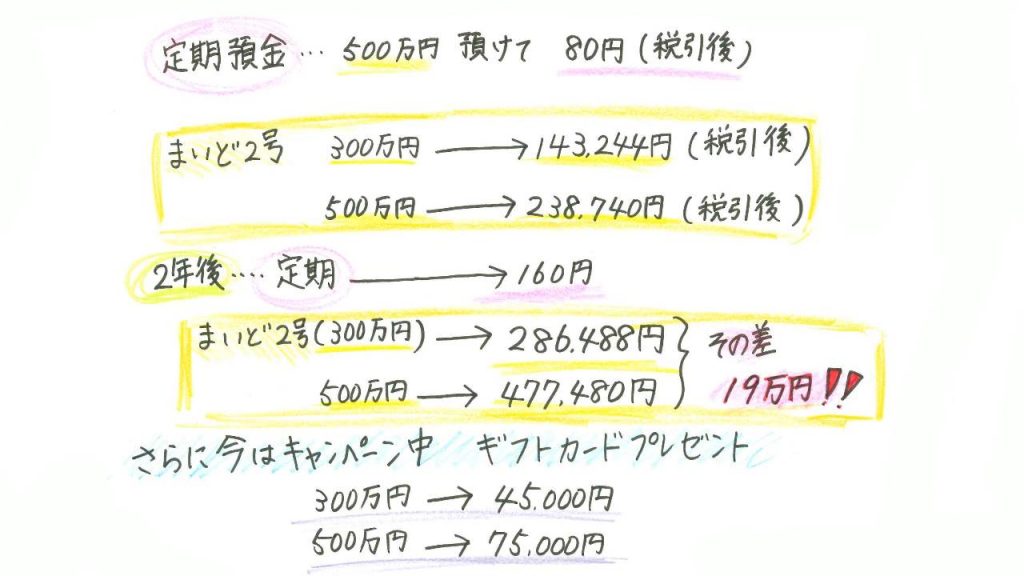 定期預金… 500万円 預けて 80円(税引後)
まいど2号 300万円 → 143,244円(税引後)
500万円 → 238,740円(税引後)
2年後‥‥定期 → 160円
まいど2号(300万円) → 286,488円
500万円 → 477,480円
その差
19万円!!
さらに今はキャンペーン中 ギフトカードプレゼント
300万円 → 45,000円
500万円 → 75,000円